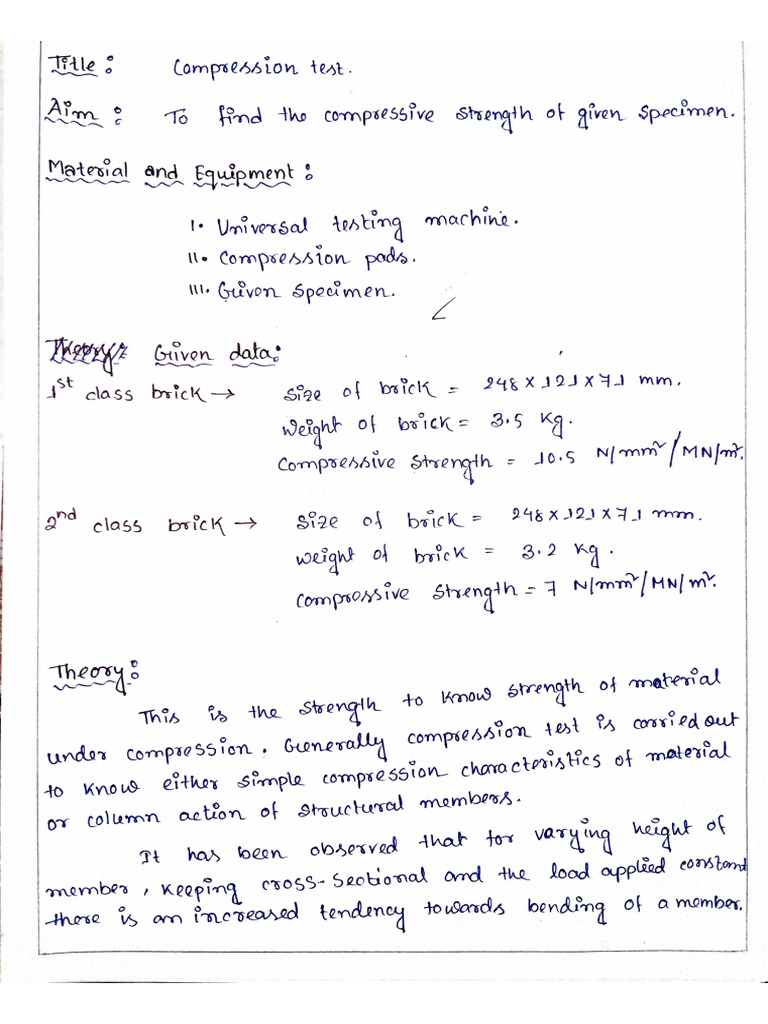 Title : Compression test.
Aim : To find the compressive strength of given specimen.
Material and Equipment :
I. Universal testing machine.
II. Compression pads.
III. Given specimen.
Theory: Given data:
1st class brick → Size of brick = 248 x 121 x 71 mm.
Weight of brick = 3.5 kg.
Compressive strength = 10.5 N/mm²/MN/m².
2nd class brick → Size of brick = 248 x 121 x 71 mm.
Weight of brick = 3.2 kg.
Compressive strength = 7 N/mm²/MN/m².
Theory:
This is the strength to know strength of material
under compression. Generally compression test is carried out
to know either simple compression characteristics of material
or column action of structural members.
It has been observed that for varying height of
member, keeping cross-sectional and the load applied constant
there is an increased tendency towards bending of a member.